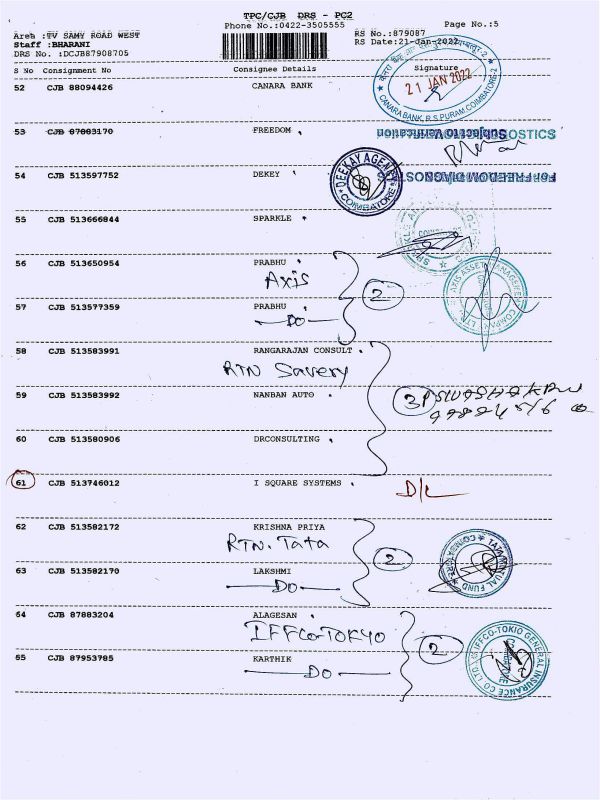 TPC/CJB DRS - PC2
Phone No.:0422-3505555 Page No.:5
Area :TV SAMY ROAD WEST RS No.:879087
Staff :BHARANI RS Date:21-Jan-2022
DRS No. :DCJB87908705
S No Consignment No Consignee Details Signature
52 CJB 88094426 CANARA BANK
21 JAN 2022
CANARA BANK, R.S PURAM COIMBATORE-2
53 CJB 87883170 FREEDOM
Subject to Verification
54 CJB 513597752 DEKEY
DEEKAY AGENCY
COIMBATORE
For FREEDOM DIAGNOSTICS
55 CJB 513666844 SPARKLE
56 CJB 513650954 PRABHU
Axis 2
AXIS ASSET MANAGEMENT COMPANY LTD
57 CJB 513577359 PRABHU
—DO—
58 CJB 513583991 RANGARAJAN CONSULT
RTN Savery
59 CJB 513583992 NANBAN AUTO 3
60 CJB 513580906 DRCONSULTING
61 CJB 513746012 I SQUARE SYSTEMS D/L
62 CJB 513582172 KRISHNA PRIYA
RTN. Tata 2
TATA MUTUAL FUND
63 CJB 513582170 LAKSHMI
—DO—
64 CJB 87883204 ALAGESAN
IFFCO-TOKYO 2
IFFCO-TOKIO GENERAL INSURANCE CO LTD
65 CJB 87953785 KARTHIK
—DO—